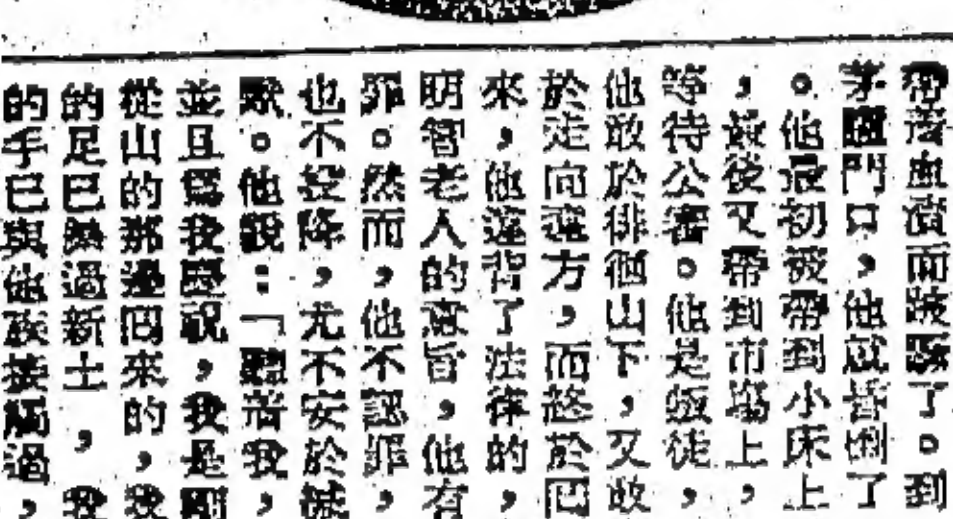 帶着血漬而跛躓了。到
茅廬門口，他就昏倒了
。他最初被帶到小床上
，最後又帶到市場上，
等待公審。他是叛徒，
他敢於徘徊山下，又敢
於走向遠方，而終於囘
來，他違背了法律的，
明智老人的意旨，他有
罪。然而，他不認罪，
也不投降，尤不安於緘
默。他說：「聽着我，
並且爲我慶祝，我是剛
從山的那邊囘來的，我
的足巳踏過新土，我
的手巳與他族接觸過，